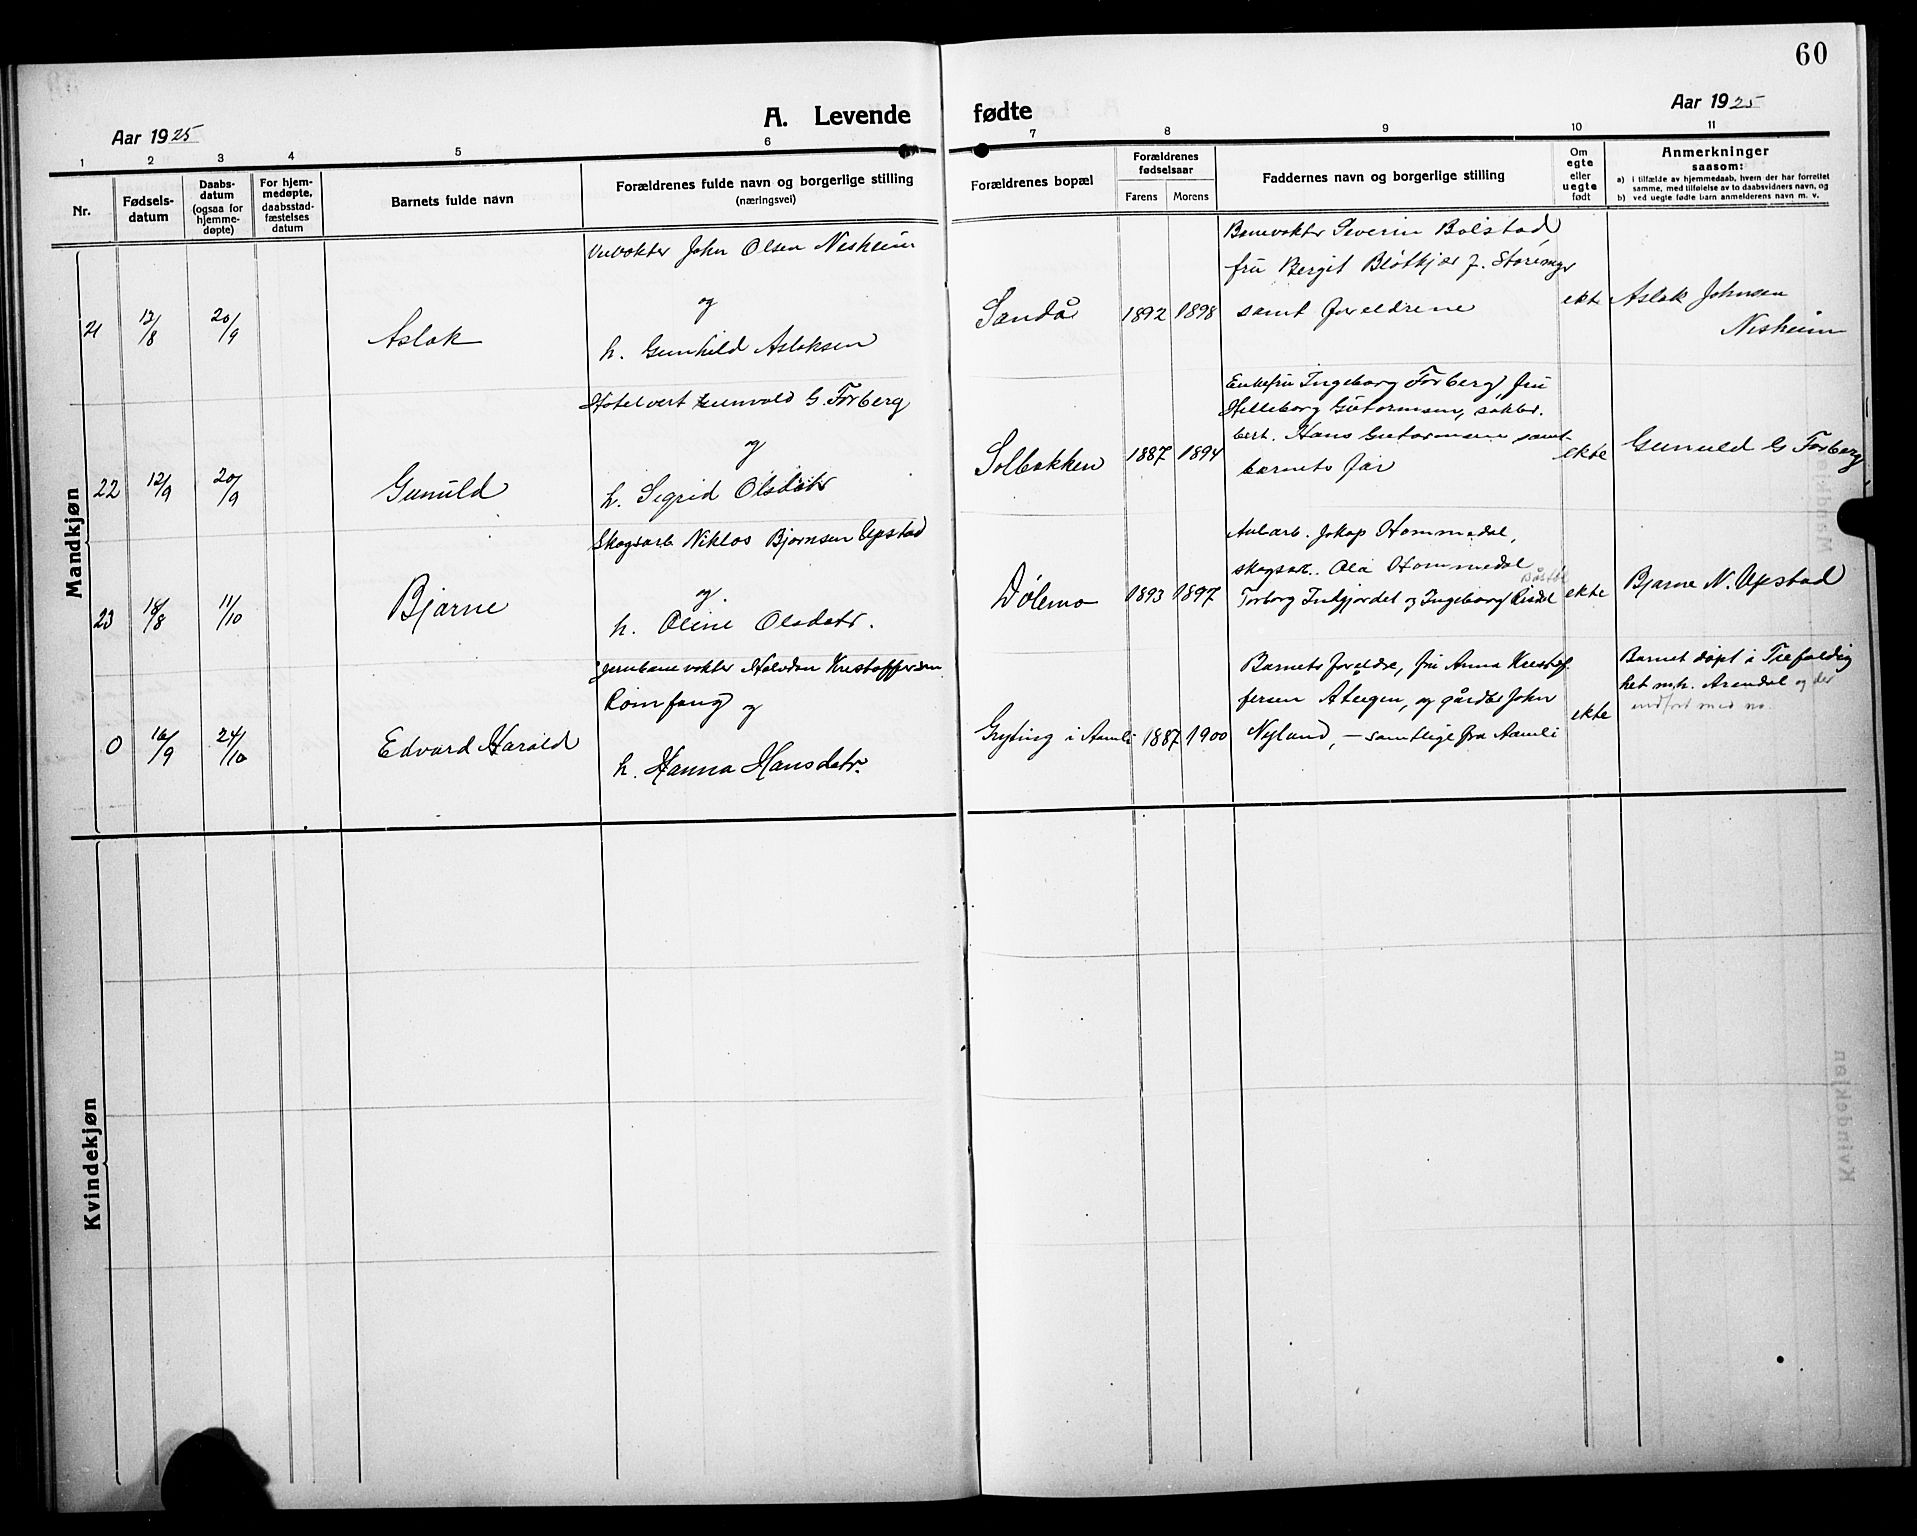 60
Aar 1925
A. Levende fødte
Aar 1925
1 2 3 4 5 6 7 8 9 10 11
Nr.
Fødsels-
datum
Daabs-
datum
(ogsaa for
hjemme-
døpte)
For hjem-
medøpte,
daabsstad-
fæstelses
datum
Barnets fulde navn
Forældrenes fulde navn og borgerlige stilling
(næringsvei)
Forældrenes bopæl
Forældrenes
fødselsaar
Farens Morens
Faddernes navn og borgerlige stilling
Om
egte
eller
uegte
født
Anmerkninger
saasom:
a) i tilfælde av hjemmedaab, hvem der har forrettet
samme, med tilføielse av to daabsvidners navn, og
b) ved uegte fødte barn anmelderens navn m. v.
Mandkjøn
21 12/8 20/9 Aslak
John Olsen Nesheim
og
h. Gunhild Aslaksen
Sandå 1892 1898
Banevokter Severin Bolstad,
fru Bergit Bløtkjær f. Storemyr
samt foreldrene
ekte
Aslak Johnsen
Nesheim
22 12/9 20/9 Gunuld
Hotelvert Gunvald G. Forberg
og
h. Sigrid Olsdatr
Solbakken 1887 1894
Enkefru Ingeborg Forberg, fru
Helleborg Gutormsen,
Hans Gutormsen samt
barnets far
ekte
Gunuld G Forberg
23 18/8 11/10 Bjarne
Skogsarb Niklos Bjørnsen Upstad
og.
h. Oline Olsdatr.
Dølemo 1893 1897
Anl.arb. Jakop Hommedal,
skogsar.. Ola Hommedal
Torborg Inkjordet og Ingeborg Risdal
ekte
Bjarne N. Upstad
0 16/9 24/10 Edvard Harald
Jernbanevokter Halvdan Kristoffersen
Romfang og
h. Hanna Hansdatr.
Gryting i Aamli 1887 1900
Barnets foreldre, fru Anna Kristof-
fersen Åteigen, og gårdbr John
Nyland, – samtlige fra Aamli
ekte
Barnet døpt i Trefoldig
het m.h. Arendal og der
indført med no.
Kvindekjøn